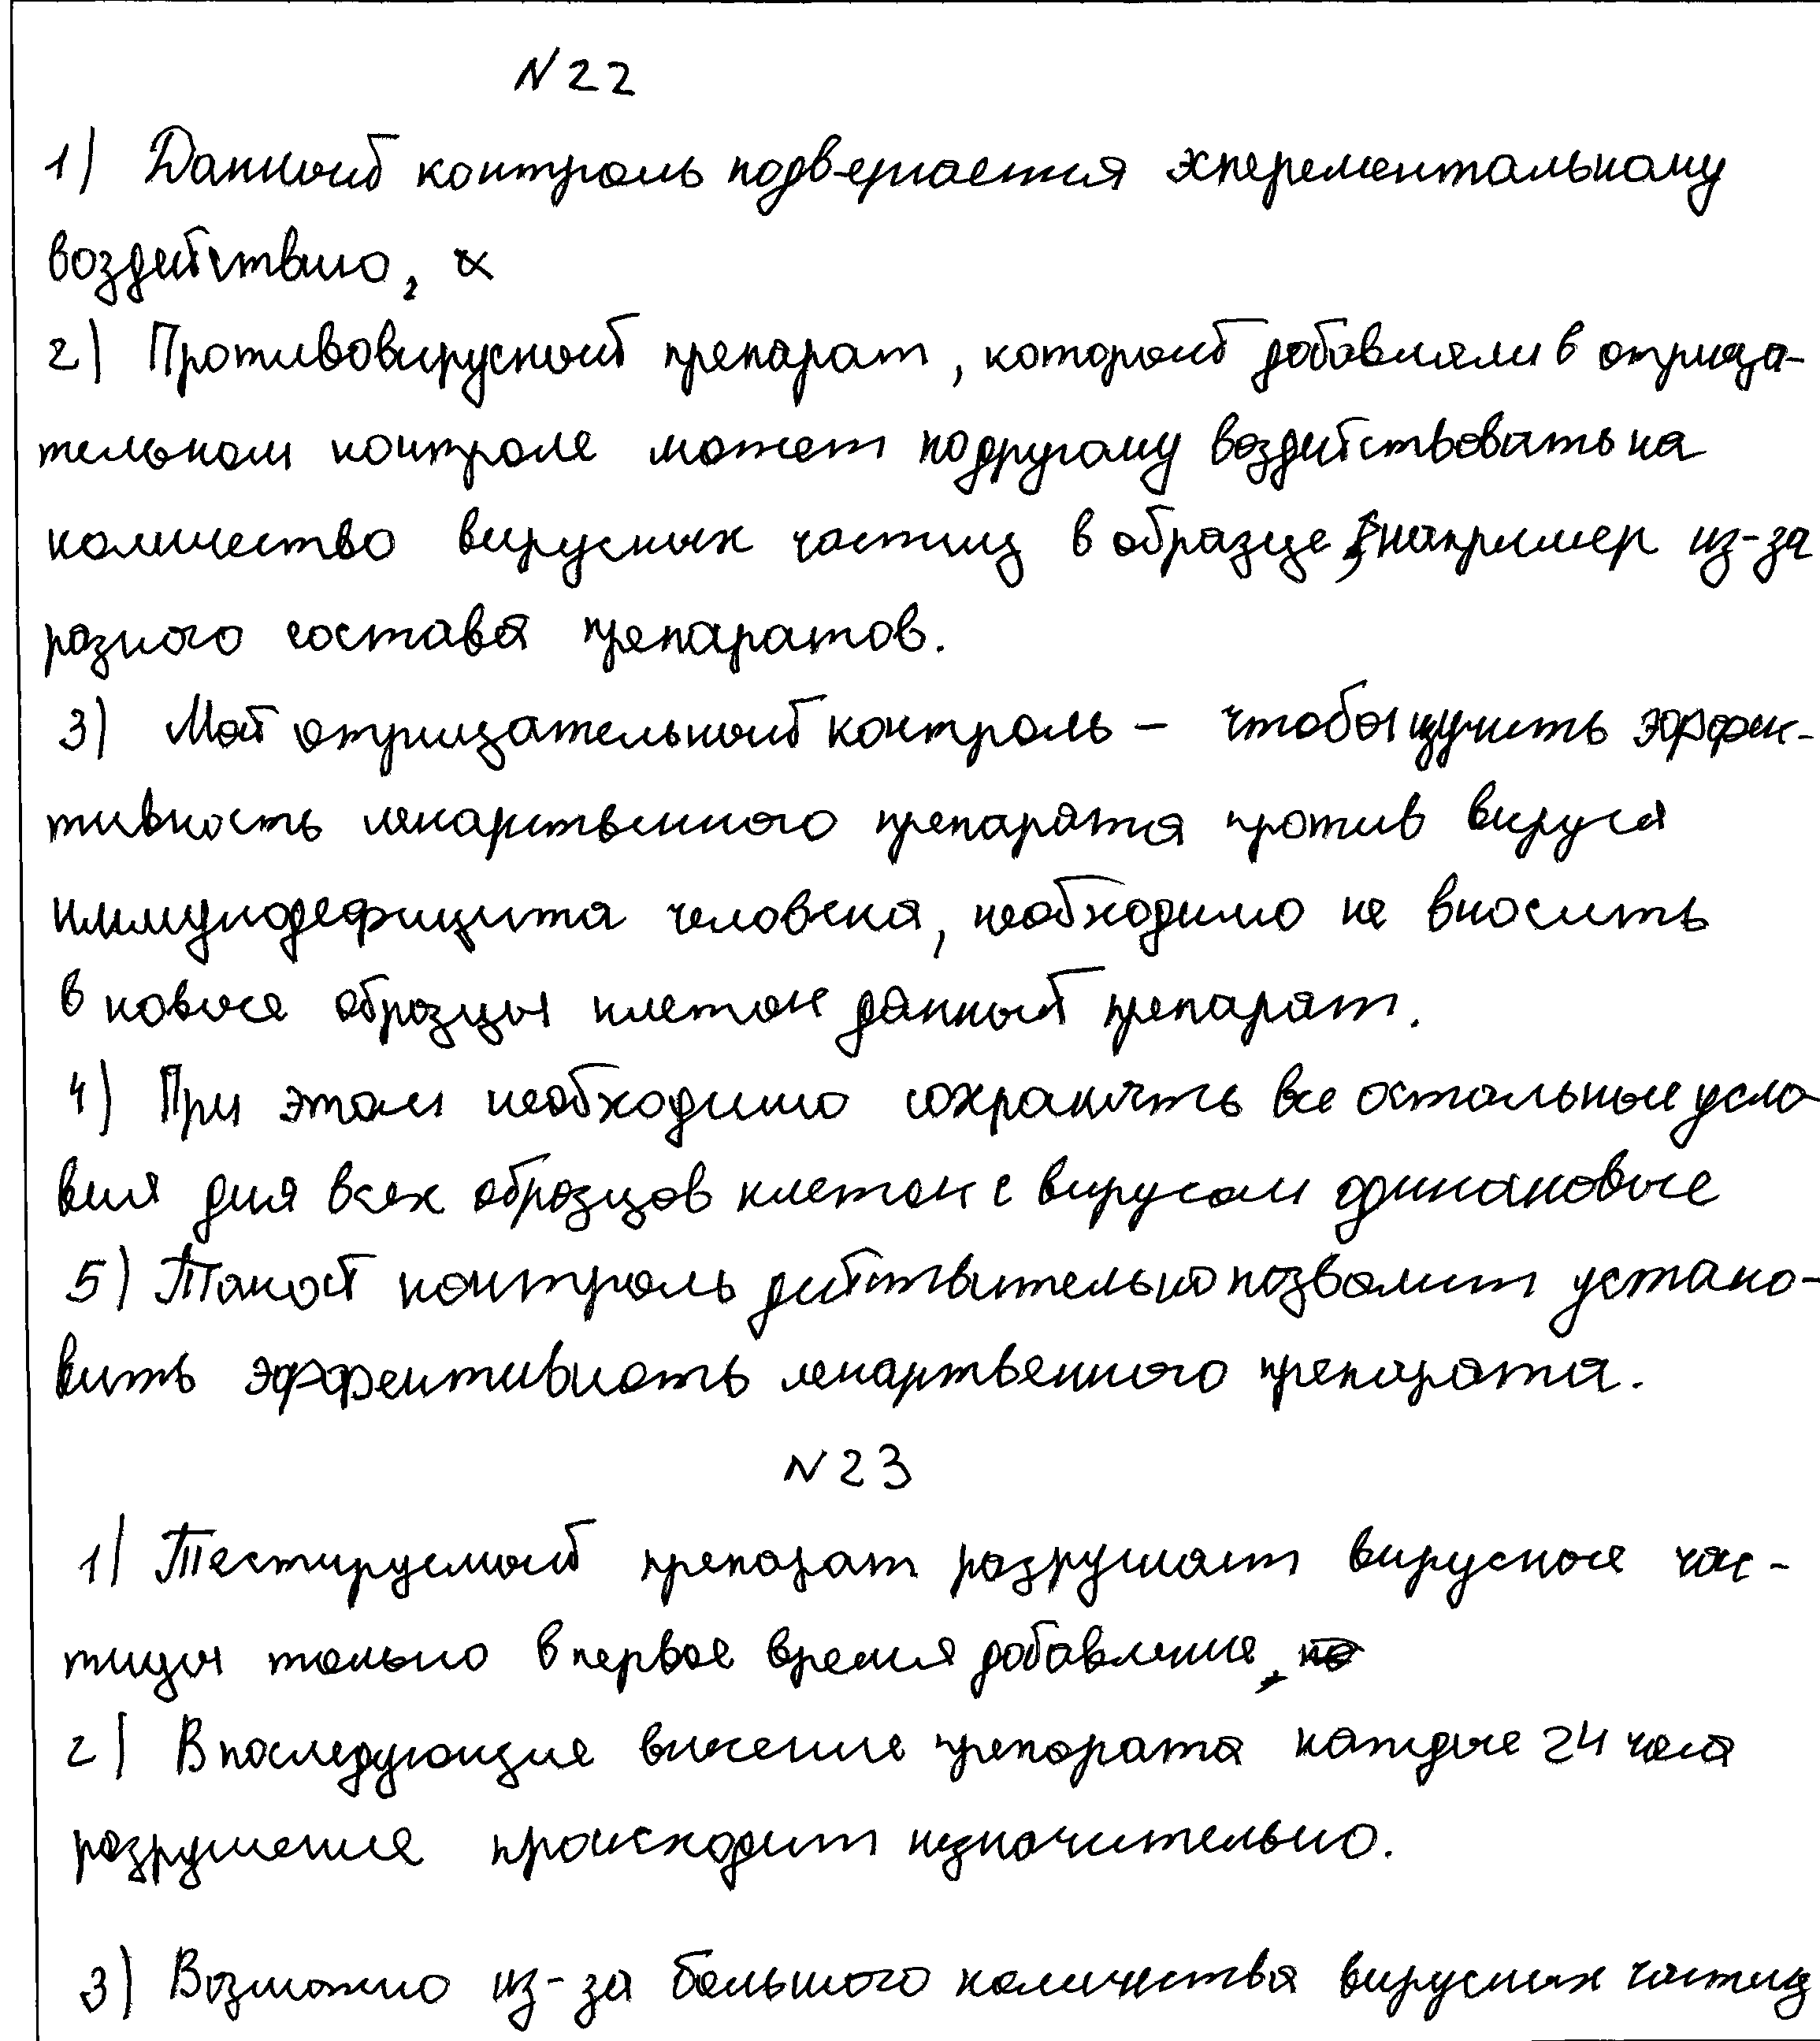 N 22
1) Данный контроль подвергается эхперементальному
воздействию,
2) Противовирусный препарат, который добавляли в отрица-
тельном контроле может подругому воздействовать на
количество вирусных частиц в образце, например из-за
разного состава препаратов.
3) Мой отрицательный контроль – чтобы изучить эффек-
тивность лекарственного препарата против вируса
иммунодефицита человека, необходимо не вносить
в новые образцы клеток данный препарат.
4) При этом необходимо сохранить все остальные усло
вия для всех образцов клеток с вирусом одинаковые
5) Такой контроль действительно позволит устано-
вить эффективность лекарственного препарата.
N 23
1) Тестируемый препарат разрушает вирусные час-
тицы только в первое время добавления,
2) В последующие внесение препарата каждые 24 часа
разрушение происходит незначительно.
3) Возможно из-за большого количества вирусных частиц